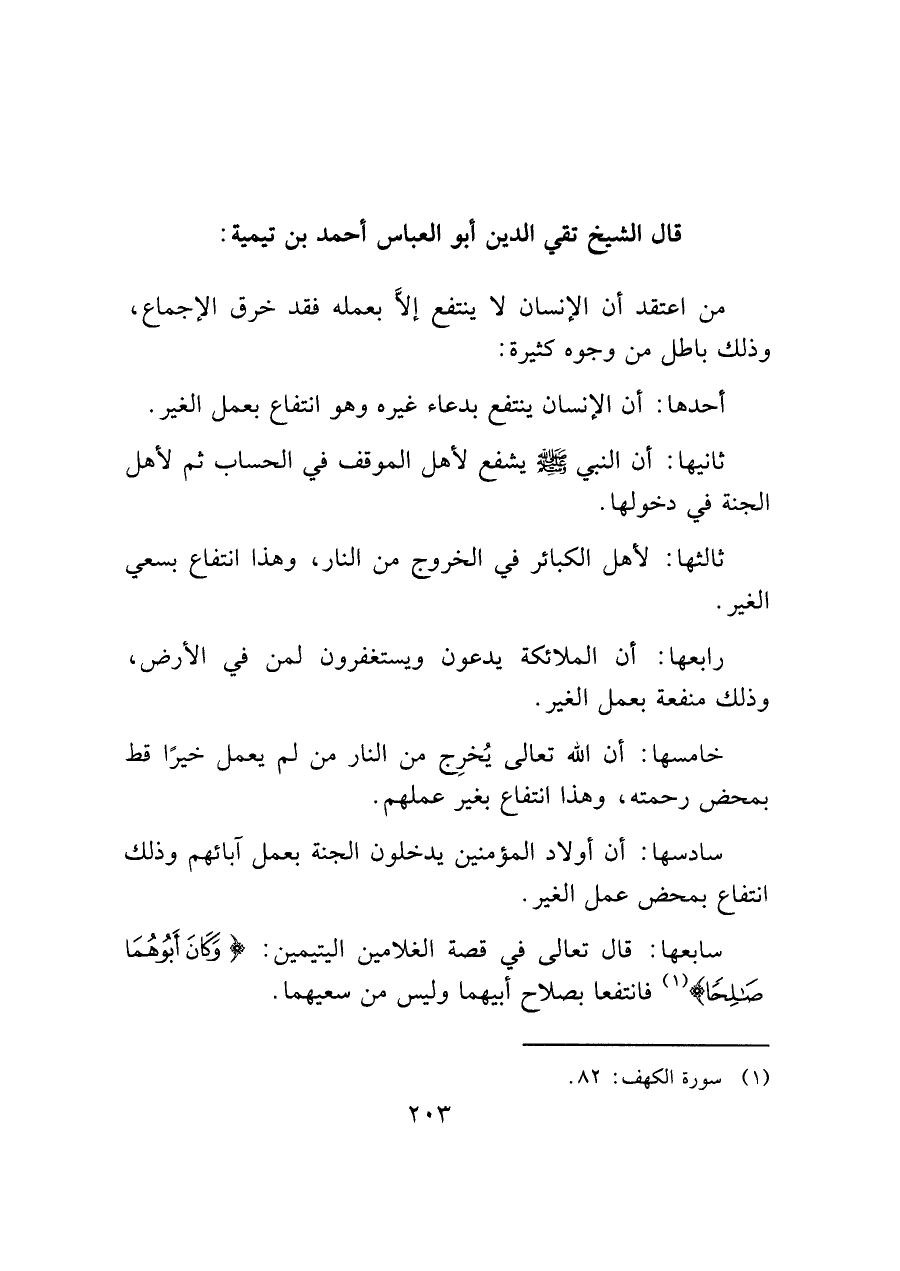 قال الشيخ تقي الدين أبو العباس أحمد بن تيمية:
من اعتقد أن الإنسان لا ينتفع إلاَّ بعمله فقد خرق الإجماع،
وذلك باطل من وجوه كثيرة:
أحدها: أن الإنسان ينتفع بدعاء غيره وهو انتفاع بعمل الغير.
ثانيها: أن النبي ﷺ يشفع لأهل الموقف في الحساب ثم لأهل
الجنة في دخولها.
ثالثها: لأهل الكبائر في الخروج من النار، وهذا انتفاع بسعي
الغير.
رابعها: أن الملائكة يدعون ويستغفرون لمن في الأرض،
وذلك منفعة بعمل الغير.
خامسها: أن الله تعالى يُخرِج من النار من لم يعمل خيرًا قط
بمحض رحمته، وهذا انتفاع بغير عملهم.
سادسها: أن أولاد المؤمنين يدخلون الجنة بعمل آبائهم وذلك
انتفاع بمحض عمل الغير.
سابعها: قال تعالى في قصة الغلامين اليتيمين: ﴿ وَكَانَ أَبُوهُمَا
صَـٰلِحًا﴾(١) فانتفعا بصلاح أبيهما وليس من سعيهما.
(١) سورة الكهف: ٨٢.
٢٠٣